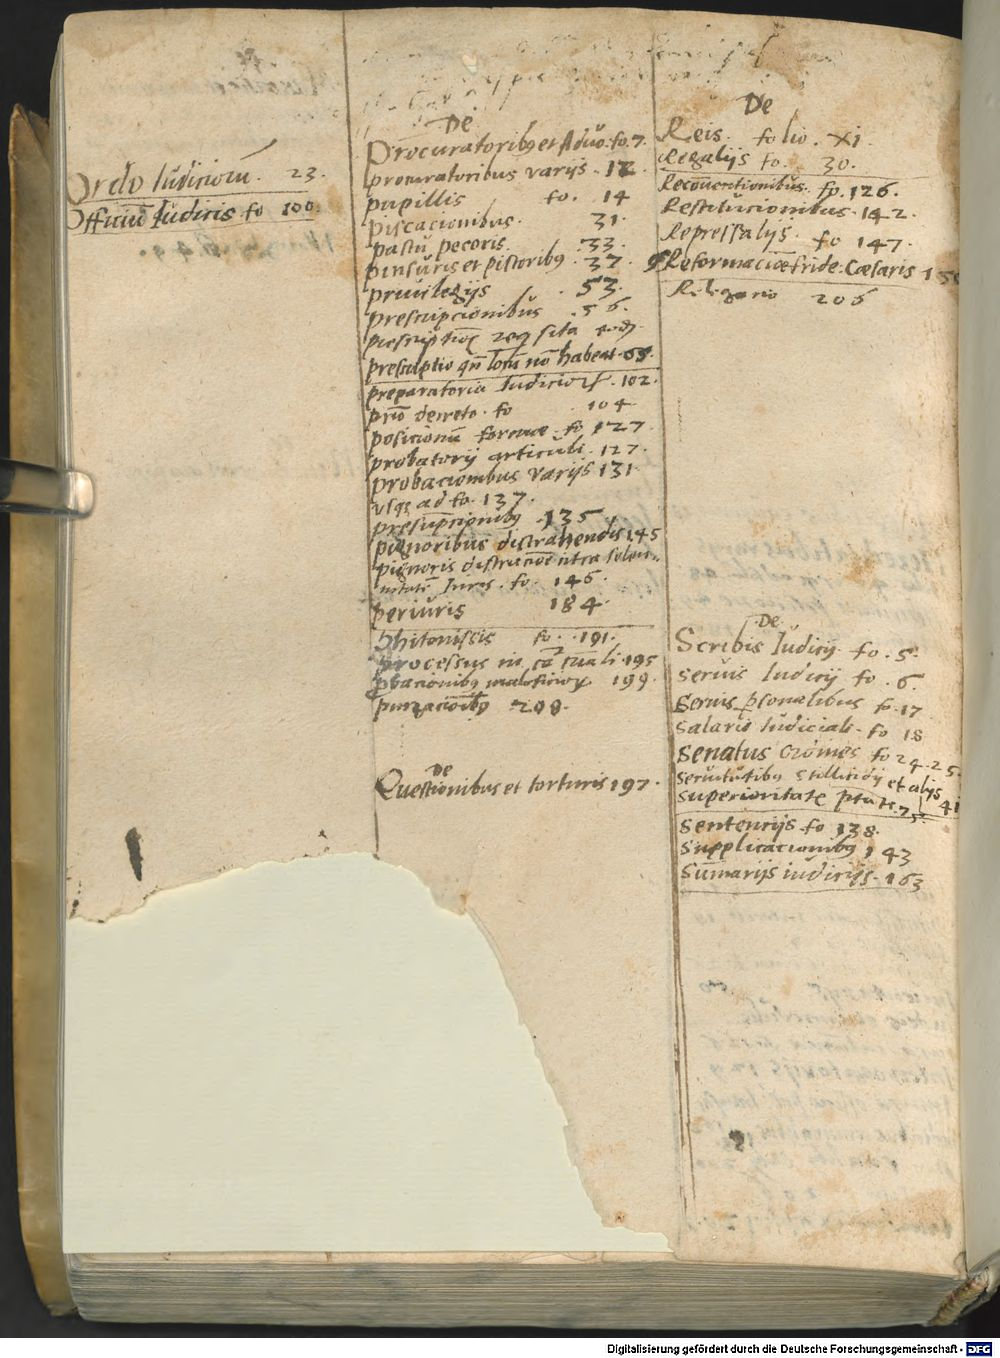 Ordo Iudiciorum. 23.
Officiū Iudicis fo 100.
De
Procuratoribꝰ et Aduo. fo. 7.
procuratoribus varijs. 12
pupillis fo. 14
piscacionibus. 31.
pastu pecoris. 33.
pinsuris et pistoribꝰ. 37.
priuilegijs 53.
prescripcionibus. 56.
prescriptio qn̄ locū nō habeat. 58.
preparatoria Iudicior. 102.
primo decreto. fo 104
posicionū formae. fo 127
probatorij articuli. 127.
probacionibus varijs 131.
usqꝫ ad fo. 137.
presūpcionibꝰ. 135.
pignoribus distrahendis 145
pignoris distractione citra solen-
nitatē Iuris. fo. 146.
periuris 184.
phitonissis fo. 191.
processus in cā 195
pbacionibꝰ maleficior 199.
purgacionibꝰ 208.
De
Questionibus et torturis 197.
De
Reis. folio. XI.
Regalijs fo. 30.
Recōuentionibus. fo. 126.
Restitucionibus. 142.
Repressalijs. fo 147.
Reformacio fride. Caesaris
206
De
Scribis Iudicij fo. 5.
Seruis Iudicij fo. 6.
Seruis psonalibus fo. 17
Salario Iudiciali. fo 18
Senatus fo 24. 25.
Seruitutibꝰ stillicidij et alijs 41
Superioritate 75.
Sentencijs fo 138.
Supplicacionibꝰ 143
Sūmarijs iudicijs. 163
Digitalisierung gefördert durch die Deutsche Forschungsgemeinschaft - DFG